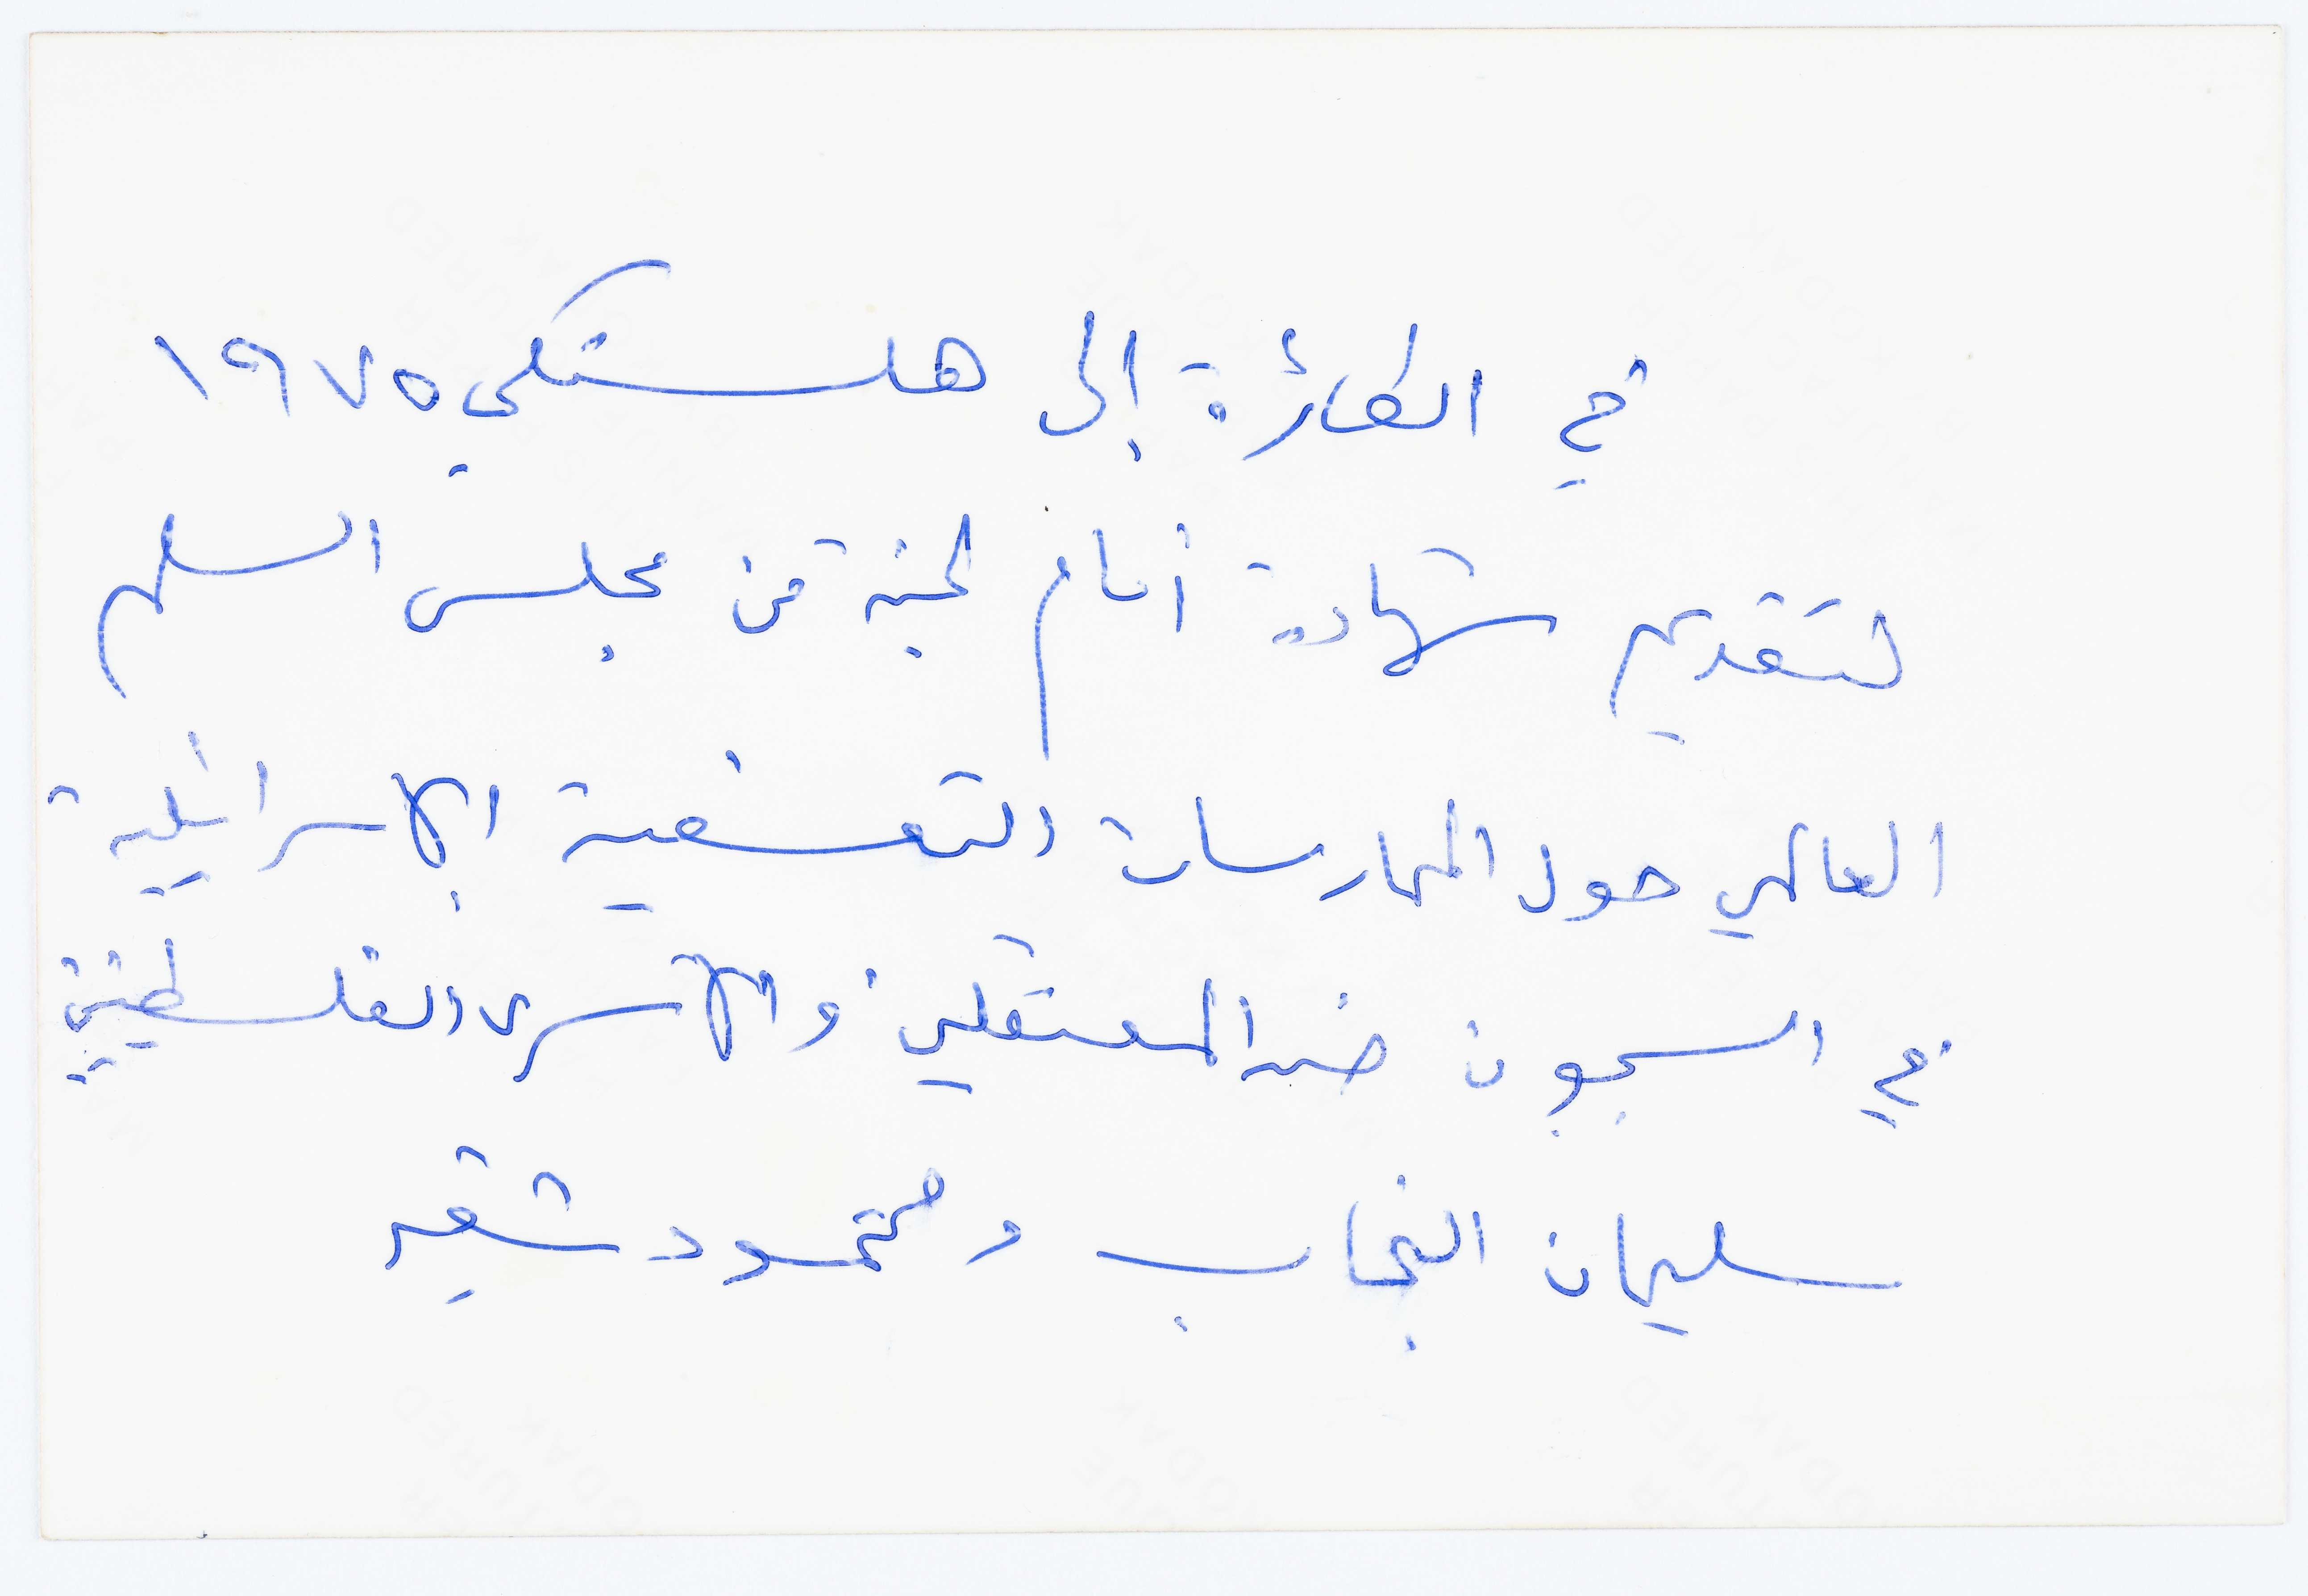 في الطائرة إلى هلسنكي ١٩٧٥
لتقديم شهادة أمام لجنة من مجلس السلم
العالمي حول الممارسات التعسفية الإسرائيلية
في السجون ضد المعتقلين والأسرى الفلسطينيين
سليمان النجاب ومحمود شقير